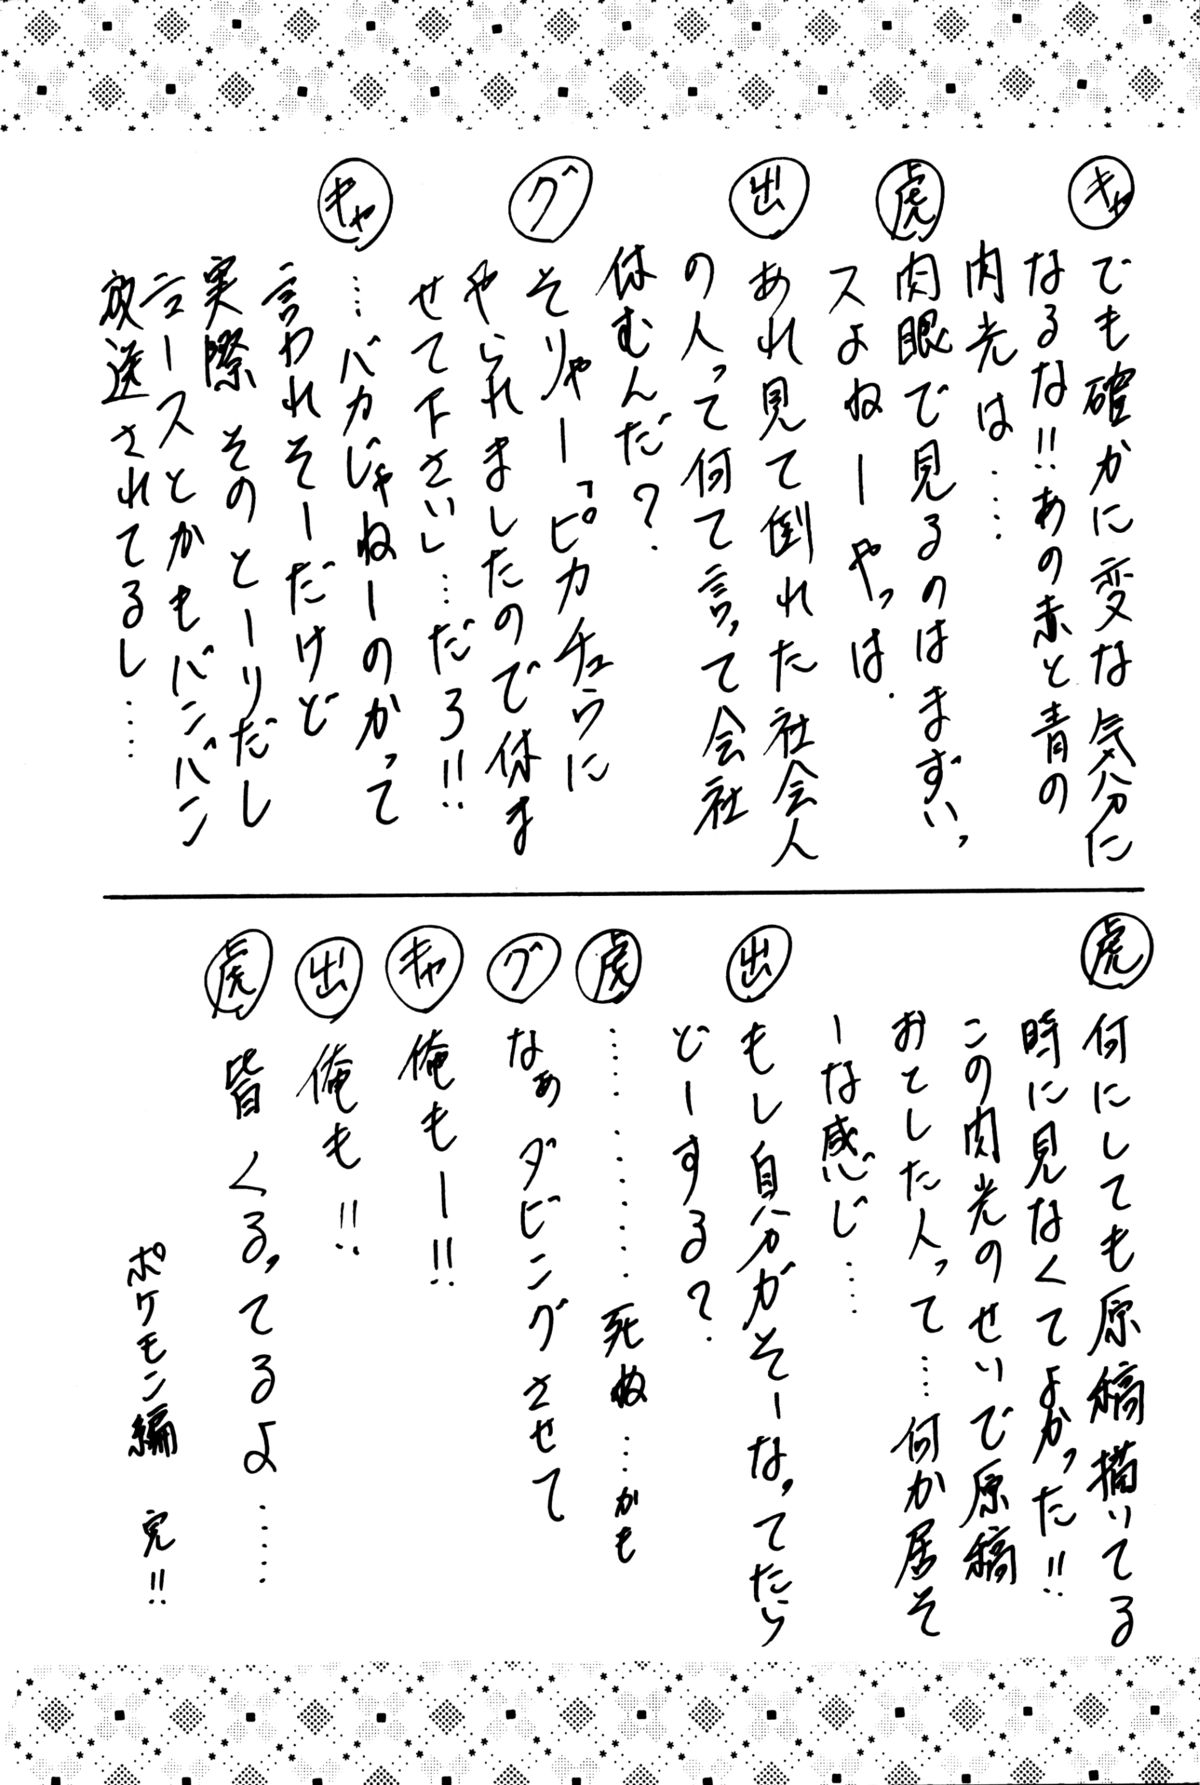 キャ でも確かに変な気分に
なるな!!あの赤と青の
肉光は‥‥
虎 肉眼で見るのはまずいっ
スよねーやっは.
出 あれ見て倒れた社会人
の人って何て言って会社
休むんだ?
グ そりゃー「ピカチュウに
やられましたので休ま
せて下さい」‥‥だろ!!
キャ ‥‥バカじゃねーのかって
言われそーだけど
実際 そのとーりだし
ニュースとかもバンバン
放送されてるし‥‥
虎 何にしても原稿描いてる
時に見なくてよかった!!
この肉光のせいで原稿
おとした人って‥‥何か居そ
ーな感じ‥‥
出 もし自分がそーなってたら
どーする?
虎 ‥‥‥‥‥死ぬ‥‥かも
グ なぁダビングさせて
キャ 俺もー!!
出 俺も!!
虎 皆くるってるよ‥‥
ポケモン編 完!!